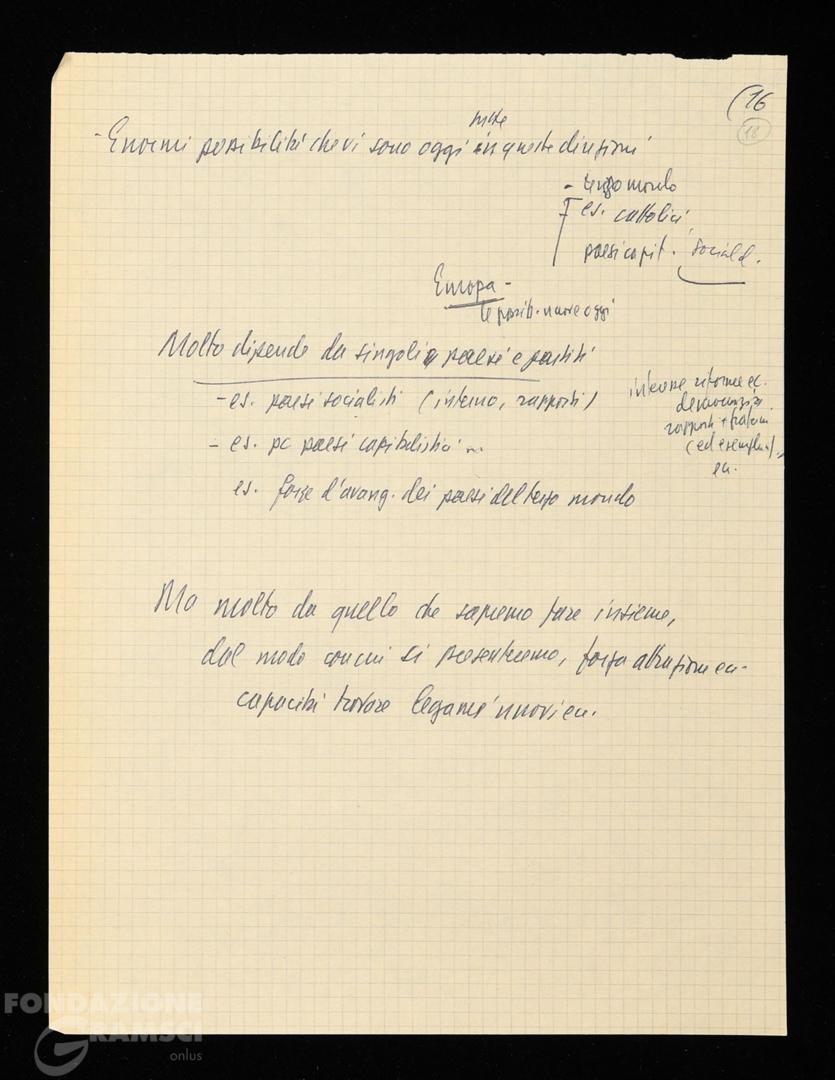 (16
18
- Enormi possibilità che vi sono oggi in queste direzioni
- terzo mondo
- es. cattolici
paesi capit. sociald.
Europa -
le possib. nuove oggi
Molto dipende da singoli paesi e partiti
- es. paesi socialisti (interno, rapporti)
interne riforme ec.
democrazia
rapporti + fratern
(ed esempl.),
ec.
- es. pc paesi capitalistici
es. forze d'avang. dei paesi del terzo mondo
Ma molto da quello che sapremo fare insieme,
dal modo con cui si presenteremo, forza attrazione ec.
capacità trovare legami nuovi ec.
FONDAZIONE
GRAMSCI
onlus